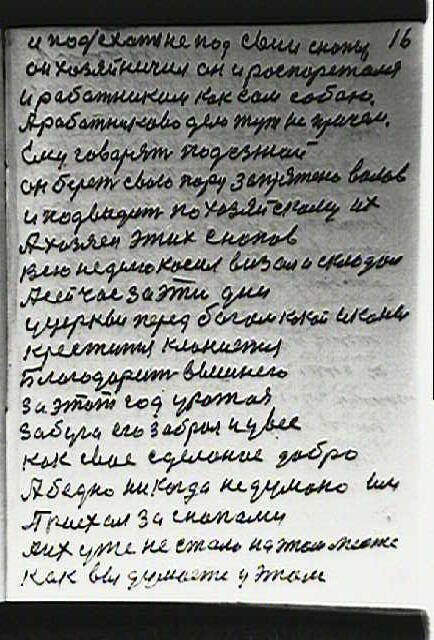 и подъехать не под свии снопы 16
он хозяйничил он и роспорежался
и работником как сам собаю.
А работниково дело тут не причем.
Ему говорят подезжай
он берет свою пару запряжено валов
и подводит по хозяйскому их
А хозяен этих снопов
всю неделю косил визал и складал
Асейчас за эти дни
у церкви перед богам какой иконы
крестится кланиется
благодарит вышнего
за этот год урожая
забула его забрал и увес
как свае сделаное добро
А бедно никогда не думано им
Приехал за снопами
Аих уже не стало на этом месте
как вы думаете у этом